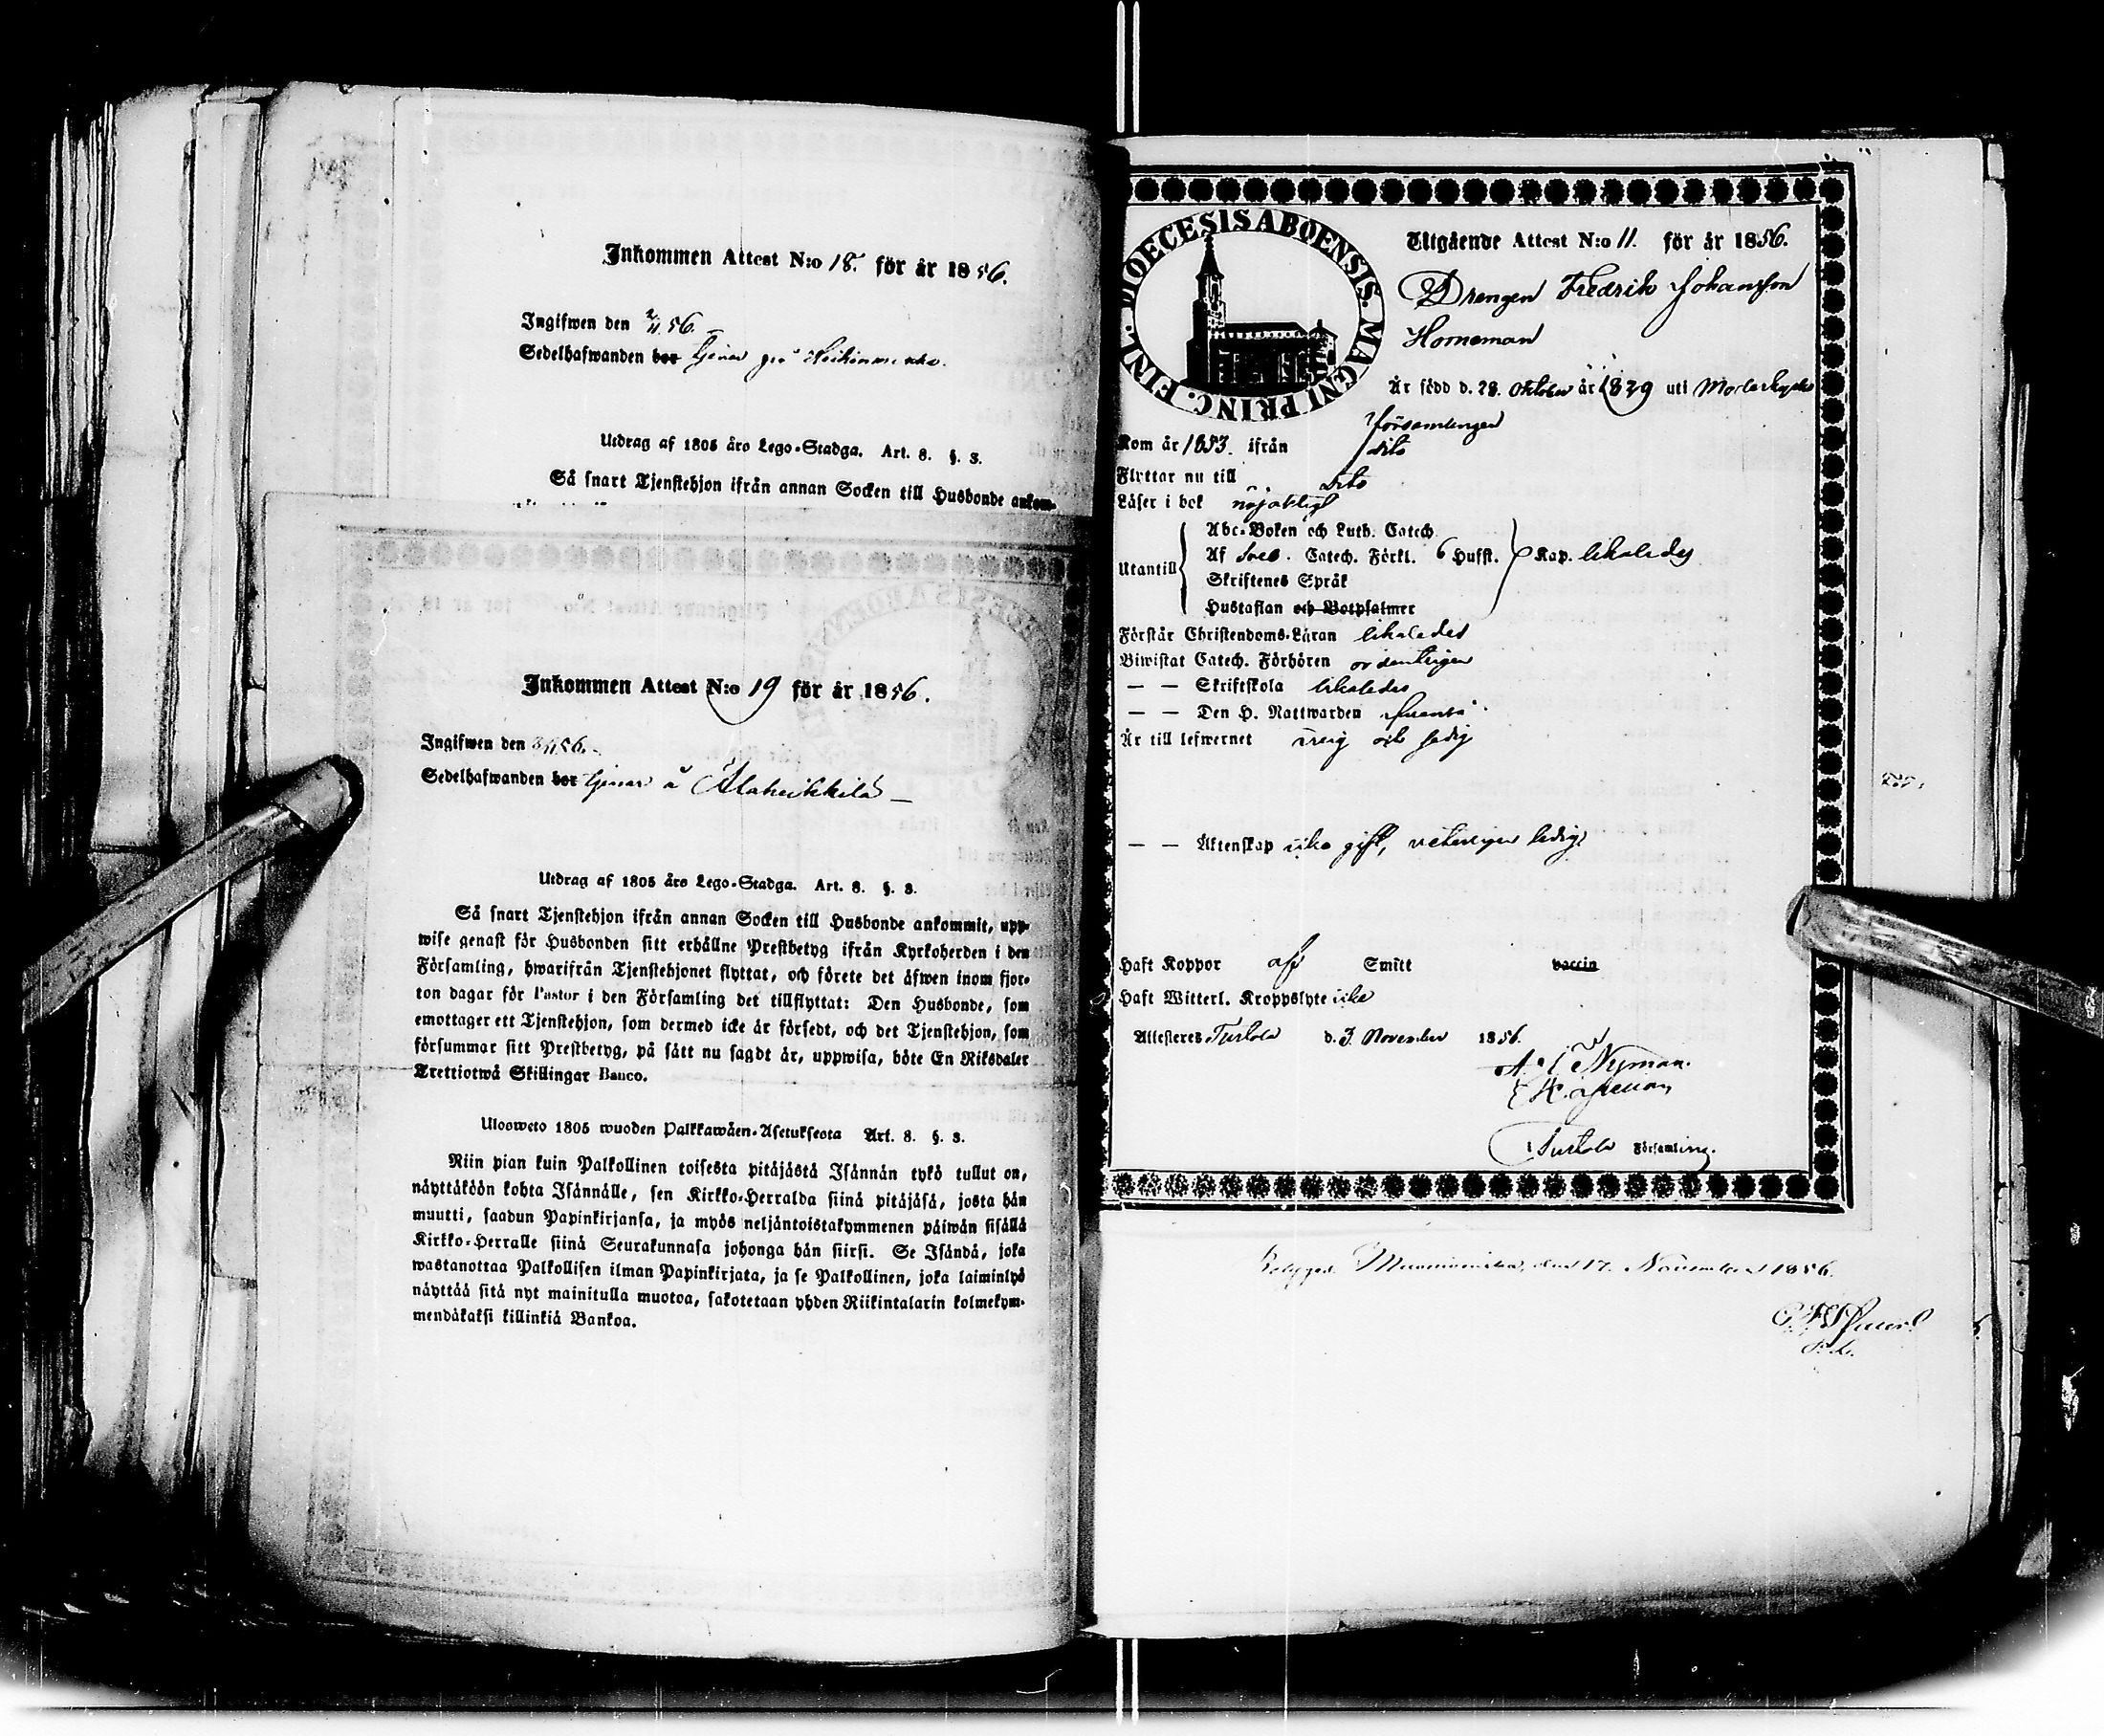 Inkommen Attest N:o 18. för år 1856.
Ingifwen den 2/11 56.
Sedelhafwanden bor tjenar på
Utdrag af 1805 års Lego-Stadga. Art. 8. §. 3.
Så snart Tjenstehjon ifrån annan Socken till Husbonde ankom-
Inkommen Attest N:o 19 för år 1856.
Ingifwen den
Sedelhafwanden bor tjenar å Alaheikkilä
Utdrag af 1805 års Lego-Stadga. Art. 8. §. 3.
Så snart Tjenstehjon ifrån annan Socken till Husbonde ankommit, upp-
wise genast för Husbonden sitt erhållne Prestbetyg ifrån Kyrkoherden i den
Församling, hwarifrån Tjenstehjonet flyttat, och förete det äfwen inom fjor-
ton dagar för Pastor i den Församling det tillflyttat: Den Husbonde, som
emottager ett Tjenstehjon, som dermed icke är försedt, och det Tjenstehjon, som
försummar sitt Prestbetyg, på sätt nu sagdt är, uppwisa, böte En Riksdaler
Trettiotwå Skillingar Banco.
Ulosweto 1805 wuoden Palkkawäen-Asetuksesta Art. 8. §. 3.
Niin pian kuin Palkollinen toisesta pitäjästä Isännän tykö tullut on,
näyttäköön kohta Isännälle, sen Kirkko-Herralda siinä pitäjäsä, josta hän
muutti, saadun Papinkirjansa, ja myös neljäntoistakymmenen päiwän sisällä
Kirkko-Herralle siinä Seurakunnasa johonga hän siirsi. Se Isändä, joka
wastanottaa Palkollisen ilman Papinkirjata, ja se Palkollinen, joka laiminlyö
näyttää sitä nyt mainitulla muotoa, sakotetaan yhden Riikintalarin kolmekym-
mendäkaksi killinkiä Bankoa.
FINL. DIOECESIS ABOENSIS. MAGNI PRINC.
Utgående Attest N:o 11. för år 1856.
Drengen Fredrik Johansson
Horneman
Är född d. 28. Oktober år 1829 uti
församlingen
Kom år 1853. ifrån dito
Flyttar nu till dito
Läser i bok nöjaktligt
Utantill
Abc-Boken och Luth. Catech.
Af Catech. Förkl. 6 Hufst. Kap. likaledes
Skriftenes Språk
Hustaflan och Botpsalmer
Förstår Christendoms-Läran likaledes
Biwistat Catech. Förhören ordentligen
— — Skriftskola likaledes
— — Den H. Nattwarden
Är till lefwernet ärlig och sedig
— — Äktenskap icke gift, veterligen ledig
Haft Koppor af Smitt vaccin
Haft Witterl. Kroppslyte icke
Attesteres d. 3 November 1856.
Nyman.
i Församling.
den 17. November 1856.